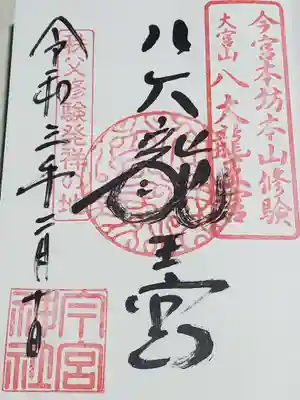 今宮本坊本山修験
大宮山 八大龍王宮
八大龍王宮
秩父修験発祥の地
令和三年二月十日
今宮神社